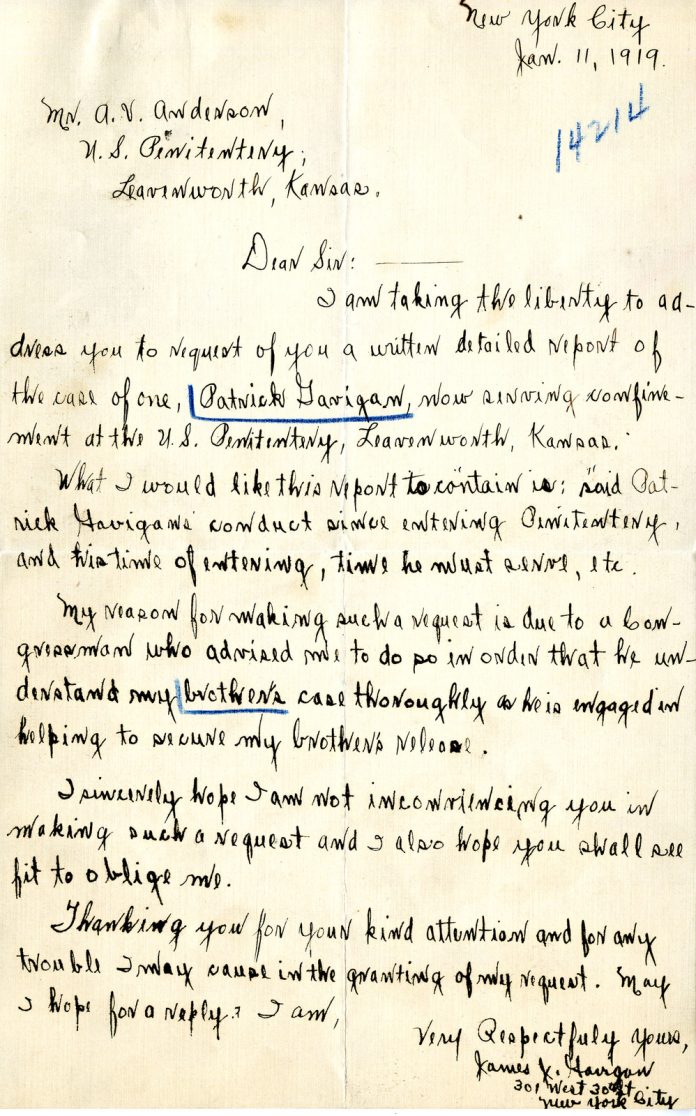 New York City
Jan. 11, 1919.
14214
Mr. A. V. Anderson,
U. S. Penitentery,
Leavenworth, Kansas.
Dear Sir: ———
I am taking the liberty to ad-
dress you to request of you a written detailed report of
the case of one, Patrick Gavigan, now serving confine-
ment at the U. S. Penitentery, Leavenworth, Kansas.
What I would like this report to contain is: said Pat-
rick Gavigans conduct since entering Penitentery,
and his time of entering, time he must serve, etc.
My reason for making such a request is due to a Con-
gressman who advised me to do so in order that he un-
derstand my brother's case thoroughly as he is engaged in
helping to secure my brother's release.
I sincerely hope I am not inconviencing you in
making such a request and I also hope you shall see
fit to oblige me.
Thanking you for your kind attention and for any
trouble I may cause in the granting of my request. May
I hope for a reply? I am,
Very Respectfuly Yours,
James J. Gavigan
301 West 30th St
New York City